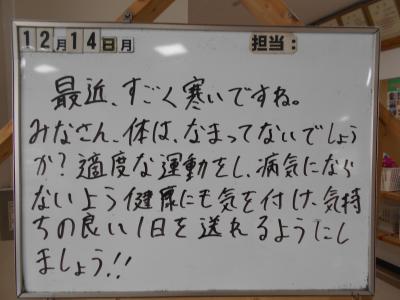 12月14日月 担当:
最近、すごく寒いですね。
みなさん、体は、なまってないでしょう
か?適度な運動をし、病気になら
ないよう健康にも気を付け、気持
ちの良い1日を送れるようにし
ましょう!!